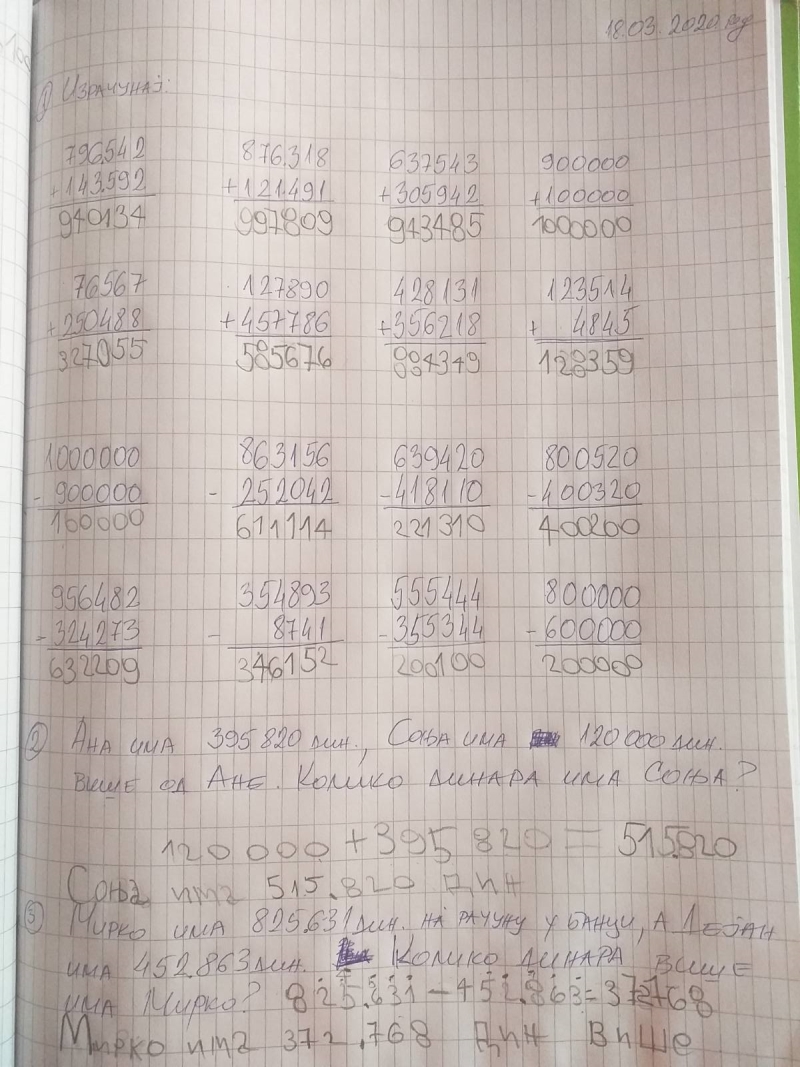 18.03.2020 год
1 Израчунај:
796.542 876.318 637543 900000
+143.592 +121.491 +305942 +100000
940134 997809 943485 1000000
76567 127890 428131 123514
+250488 +457786 +356218 + 4845
327055 585676 884349 128359
1000000 863156 639420 800520
-900000 - 252042 -418110 -400320
100000 611114 221310 400200
956482 354893 555444 800000
-324273 - 8741 -355344 -600000
632209 346152 200100 200000
2 Ана има 395820 дин., Соња има 120000 дин.
више од Ане. Колико динара има Соња?
120000+395820=515.820
Соња има 515.820 дин
3 Мирко има 825.631 дин. на рачуну у банци, а Дејан
има 452.863 дин. Колико динара више
има Мирко? 825.631-452.863=372768
Мирко има 372.768 дин више